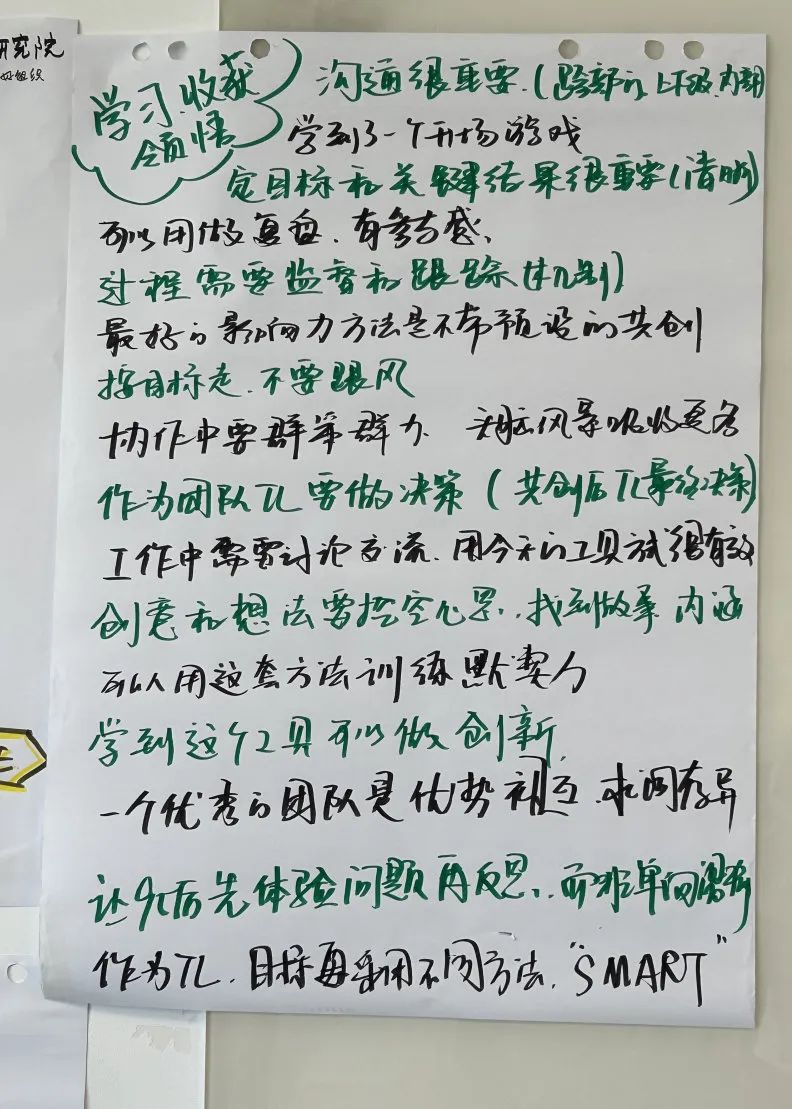 研究院
组织
学习收获
领悟
沟通很重要.(跨部门,上下级,内部)
学到了一个开场游戏
定目标和关键结果很重要(清晰)
可以用做复盘.有参与感、
过程需要监督和跟踪(机制)
最好的影响力方法是不带预设的共创
按目标走.不要跟风
协作中要群策群力.头脑风暴
作为团队TL要做决策(共创后TL最终决策)
工作中需要讨论交流.用今天的工具 很有效
创意和想法要挖空心思.找到故事 内涵
可以用这套方法训练默契力
学到这个工具可以做创新
一个优秀的团队是优势 互.求同存异
让90后先体验问题再反思.而非单向灌
作为TL.目标 采用不同方法."SMART"